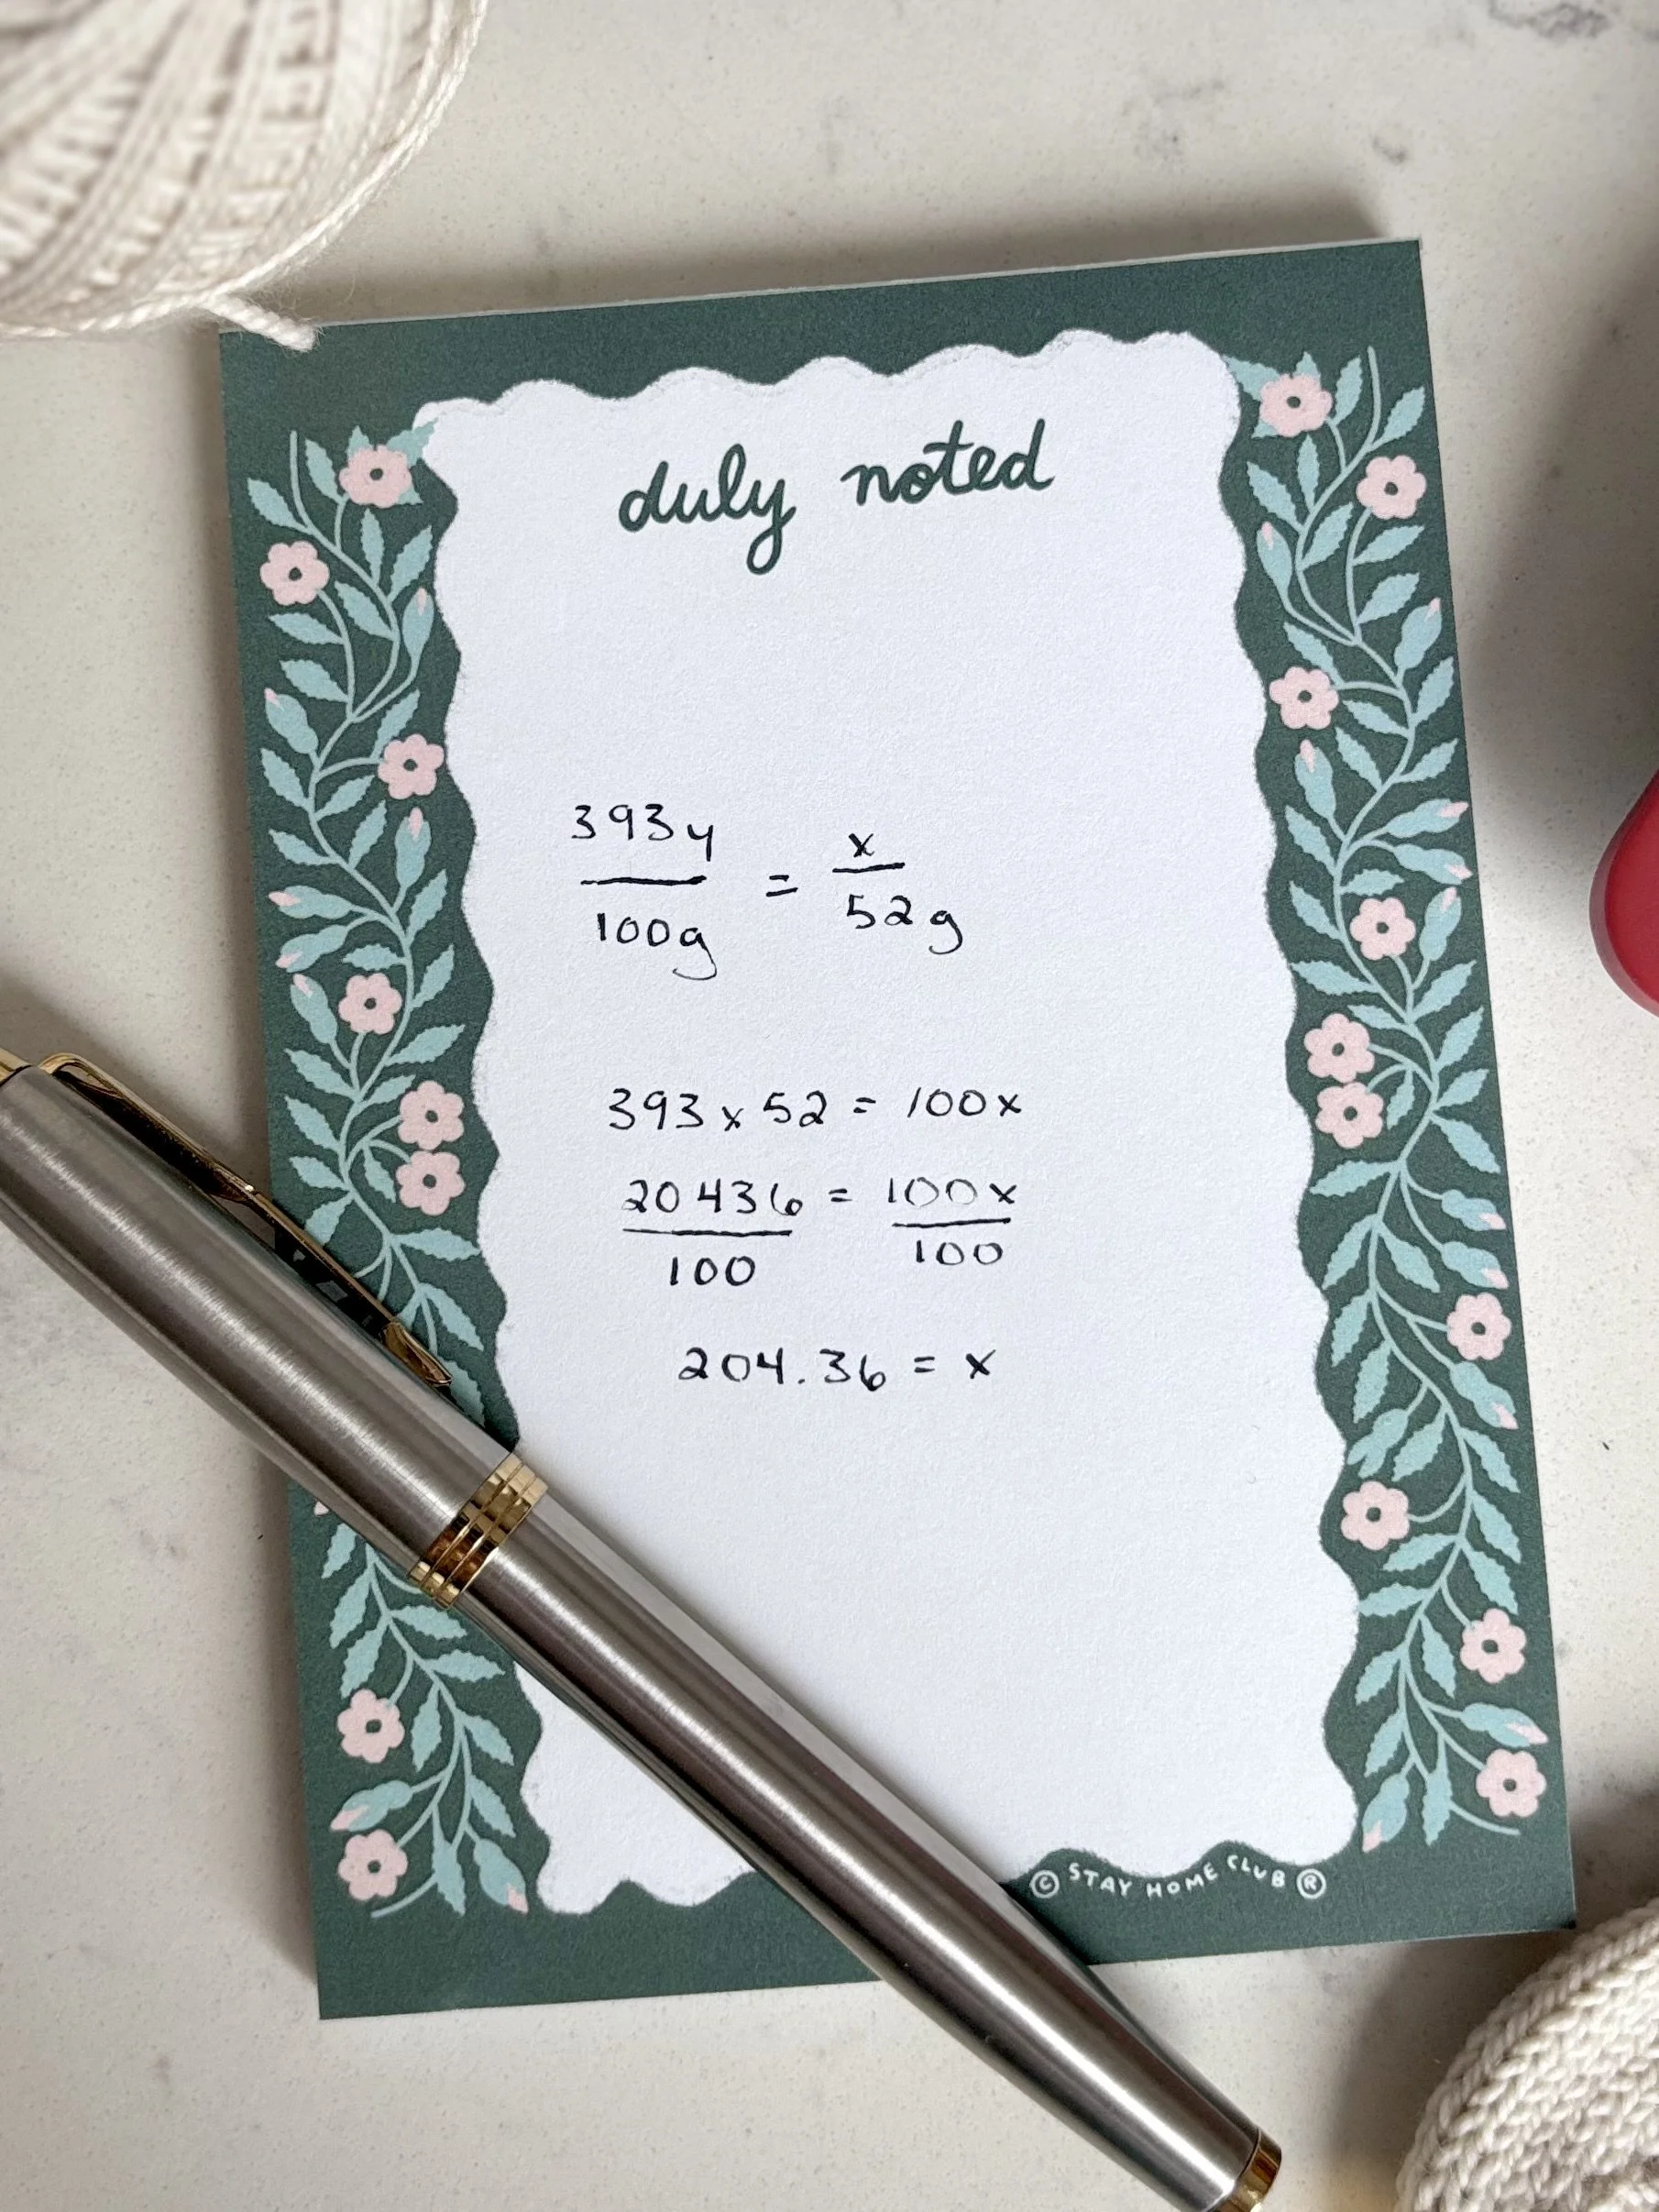 duly noted
393y = x
100g 52g
393 x 52 = 100x
20436 = 100x
100 100
204.36 = x
© STAY HOME CLUB ®